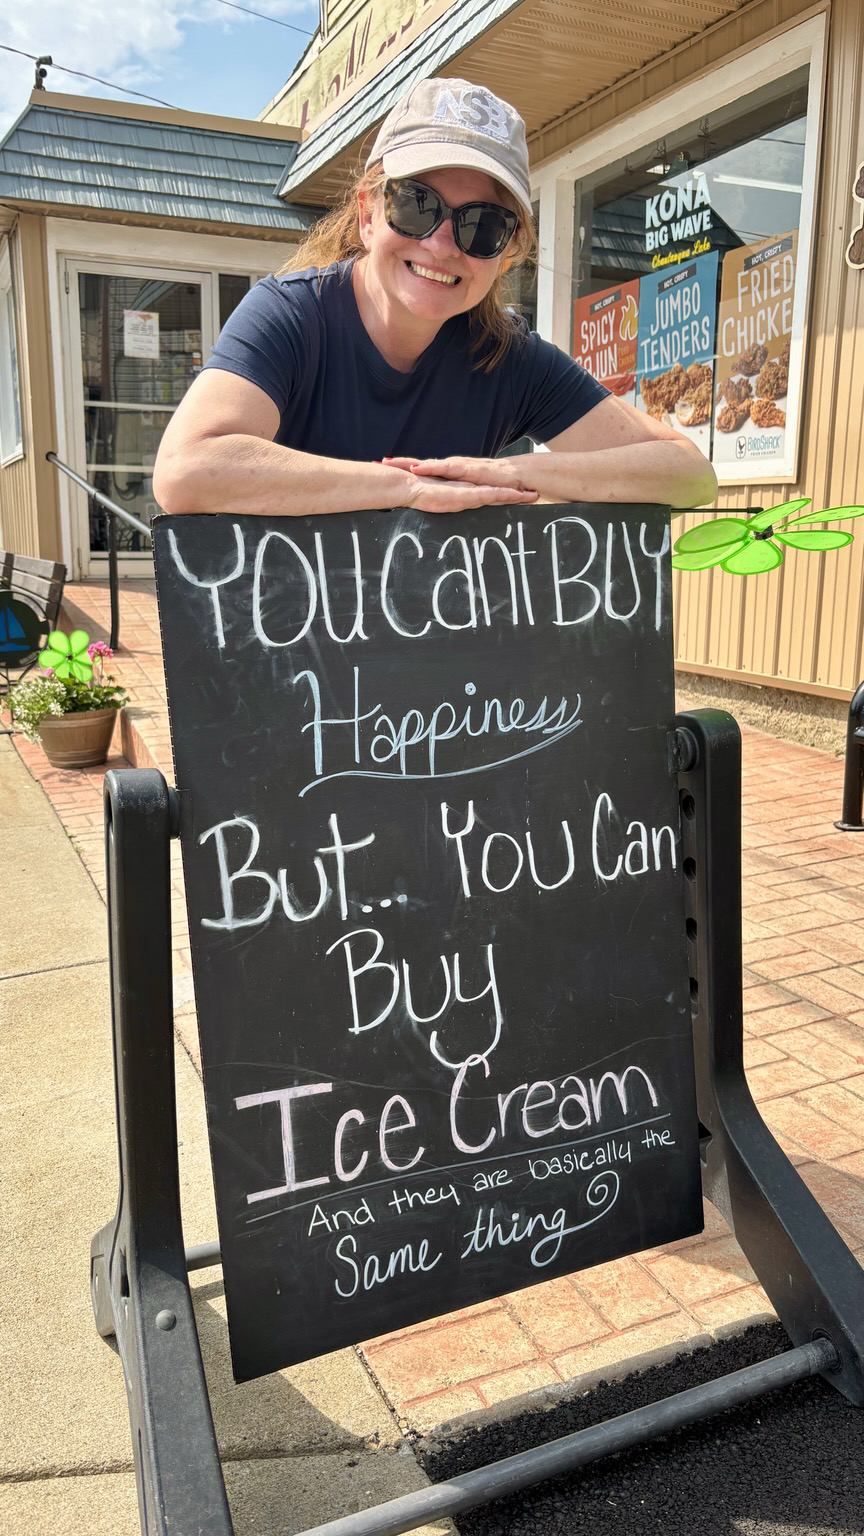 NSB
KONA
BIG WAVE
Chautauqua Lake
HOT, CRISPY
SPICY
CAJUN
HOT, CRISPY
JUMBO
TENDERS
HOT, CRISPY
FRIED
CHICKE
BIRDSHACK
YOU Can't BUY
Happiness
But... YOU Can
Buy
Ice Cream
And they are basically the
Same thing